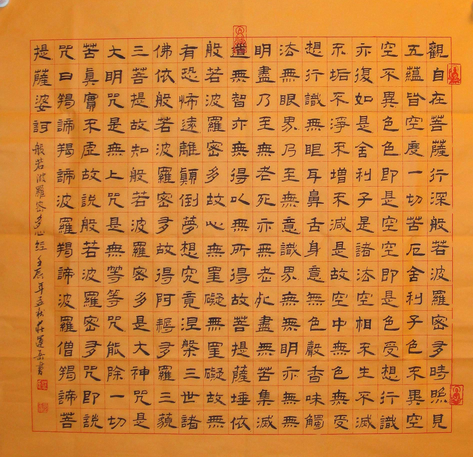 觀自在菩薩行深般若波羅密多時照見
五蘊皆空度一切苦厄舍利子色不異空
空不異色色即是空空即是色受想行識
亦復如是舍利子是諸法空相不生不滅
不垢不淨不增不減是故空中無色無受
想行識無眼耳鼻舌身意無色聲香味觸
法無眼界乃至無意識界無無明亦無無
明盡乃至無老死亦無老死盡無苦集滅
道無智亦無得以無所得故菩提薩埵依
般若波羅密多故心無罣礙無罣礙故無
有恐怖遠離顛倒夢想究竟涅槃三世諸
佛依般若波羅密多故得阿耨多羅三藐
三菩提故知般若波羅密多是大神咒是
大明咒是無上咒是無等等咒能除一切
苦真實不虛故說般若波羅密多咒即說
咒曰羯諦羯諦波羅羯諦波羅僧羯諦菩
提薩婆訶 般若波羅密多心經 壬辰年孟秋 書